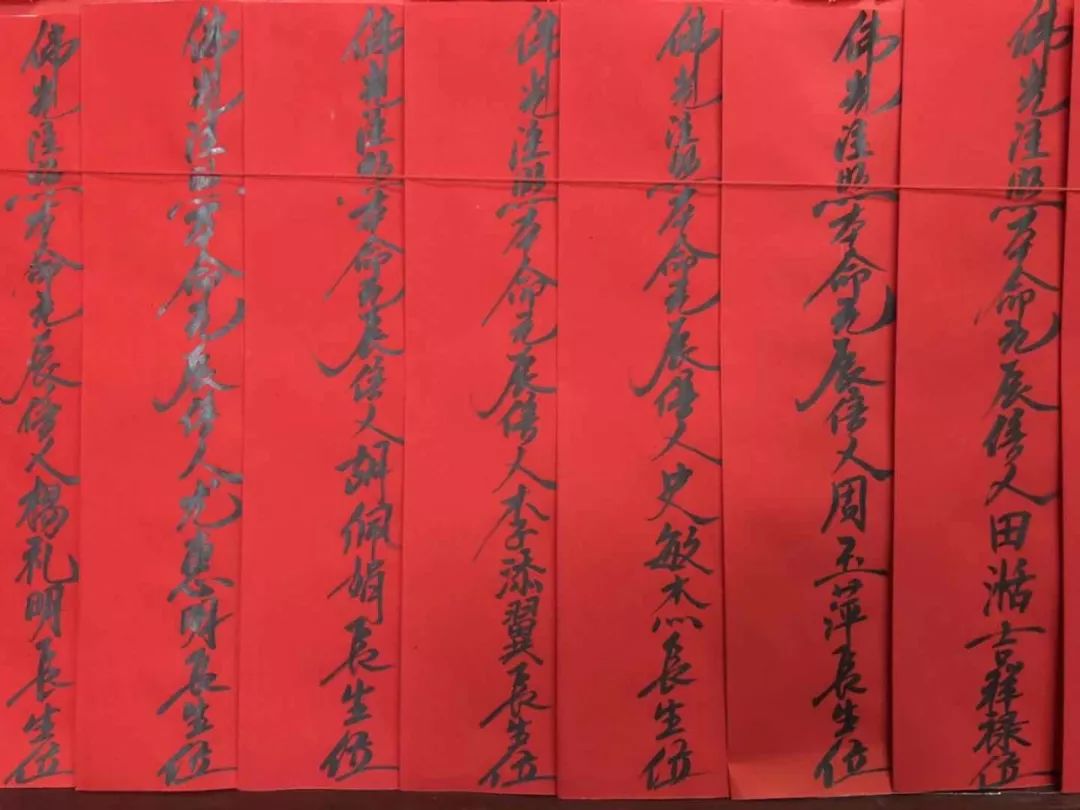 佛光注照本命元辰信人田湉吉祥禄位
佛光注照本命元辰信人周玉萍長生位
佛光注照本命元辰信人史敏杰長生位
佛光注照本命元辰信人李添翼長生位
佛光注照本命元辰信人胡佩娟長生位
佛光注照本命元辰信人尤惠明長生位
佛光注照本命元辰信人楊礼明長生位